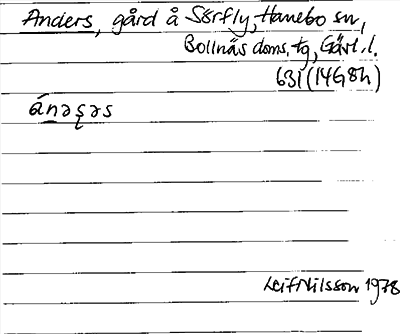 Anders, gård å Sörfly, Hanebo sn,
Bollnäs doms.tg, Gävl.l.
631 (14G8h)
ánəʂəs
Leif Nilsson 1978